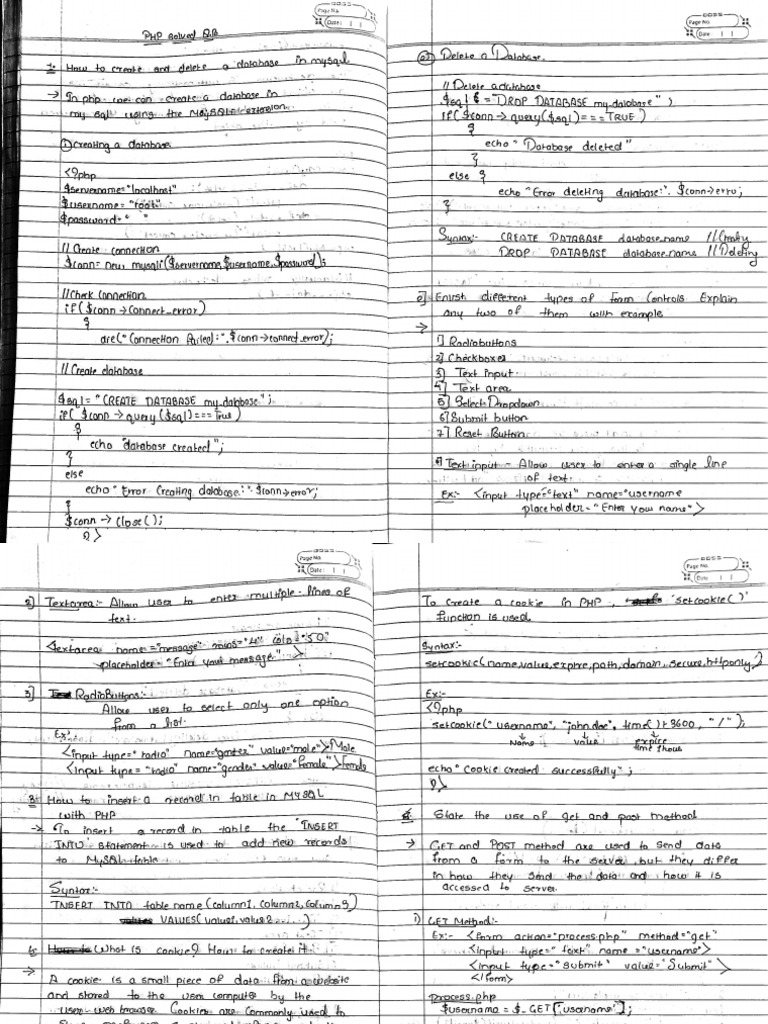 Page No.
Date: | |
PHP Solved Q.B
1. How to create and delete a database in mysql
→ In php we can create a database in
my sql using the MySQL extension.
① Creating a database
<?php
$servername="localhost"
$username= "root"
$password= " "
// Create connection
$conn= new mysqli($servername,$username,$password);
//Check connection
if($conn→Connect_error)
{
die("Connection failed:".$conn→connect_error);
// Create database
$sql= "CREATE DATABASE my_database";
if( $conn → query($sql)===True)
{
echo "database created";
}
else
echo "Error Creating database:".$conn→error;
}
$conn → close();
?>
Page No.
Date | |
② Delete a Database.
// Delete a database
$sql = "DROP DATABASE my_database")
if($conn→query($sql)===TRUE)
{
echo "Database deleted"
}
else {
echo "Error deleting database:". $conn→erro;
}
Syntax:- CREATE DATABASE database_name //Creating
DROP DATABASE database_name //Deleting
2] Enlist different types of form controls Explain
any two of them with example
→
1] Radiobuttons
2] Checkboxes
3] Text input
4] Text area
5] Select Dropdown
6] Submit button
7] Reset Button
1] Text input - Allow user to enter a single line
of text.
Ex:- <input type="text" name="username
placeholder="Enter your name">
Page No.
Date: | |
2] Textarea:- Allow user to enter multiple lines of
text.
<textarea name="message" rows="4" cols="50"
placeholder="Enter your message">
3] RadioButtons:-
Allow user to select only one option
from a list.
Ex:-
<input type="radio" name="gender" value="male">Male
<input type= "radio" name="gender" value="female">Female
3. How to insert a record in table in MYSQL
with PHP
→ To insert a record in table the "INSERT
INTO" statement is used to add new records
to MySQL table
Syntax:-
INSERT INTO table name (column1, column2, column3)
VALUES(value1, value2 ...)
4. What is cookie? How to create it
→
A cookie is a small piece of data from a website
and stored to the user computer by the
user web browser. Cookies are commonly used to
Page No.
Date | |
To create a cookie in PHP, 'setcookie()'
function is used
Syntax:-
setcookie(name,value,expire,path,domain,secure,httponly)
Ex:-
<?php
setcookie("username", "john doe", time()+3600, "/");
Name value expire
time 1 hour
echo "Cookie created successfully";
?>
State the use of get and post method
→ GET and POST method are used to send data
from a form to the server, but they differ
in how they send the data and how it is
accessed to server
1) GET Method:-
Ex:- <form action="process.php" method="get"
<input type="text" name="username">
<input type="submit" value="Submit">
</form>
process.php
$username = $_GET['username'];